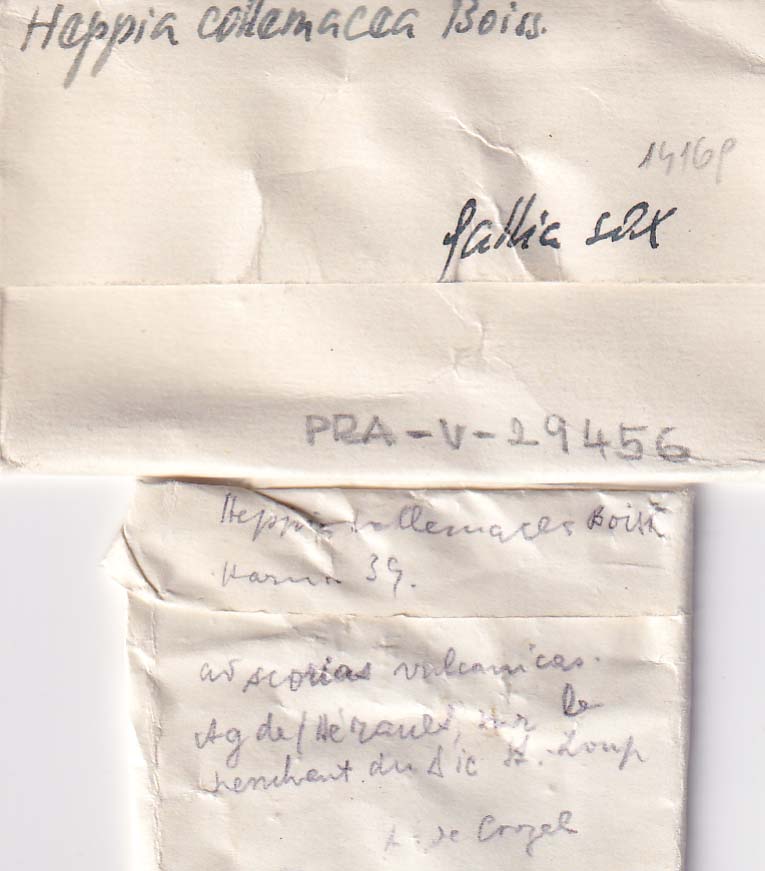 Heppia collemacea Boiss.
1416
Gallia sax
PRA-V-29456
Heppia collemacea Boiss
39.
ad scorias vulcanicas.
Agde/Hérault, sur le
penchant du Pic St. Loup
de Crozel